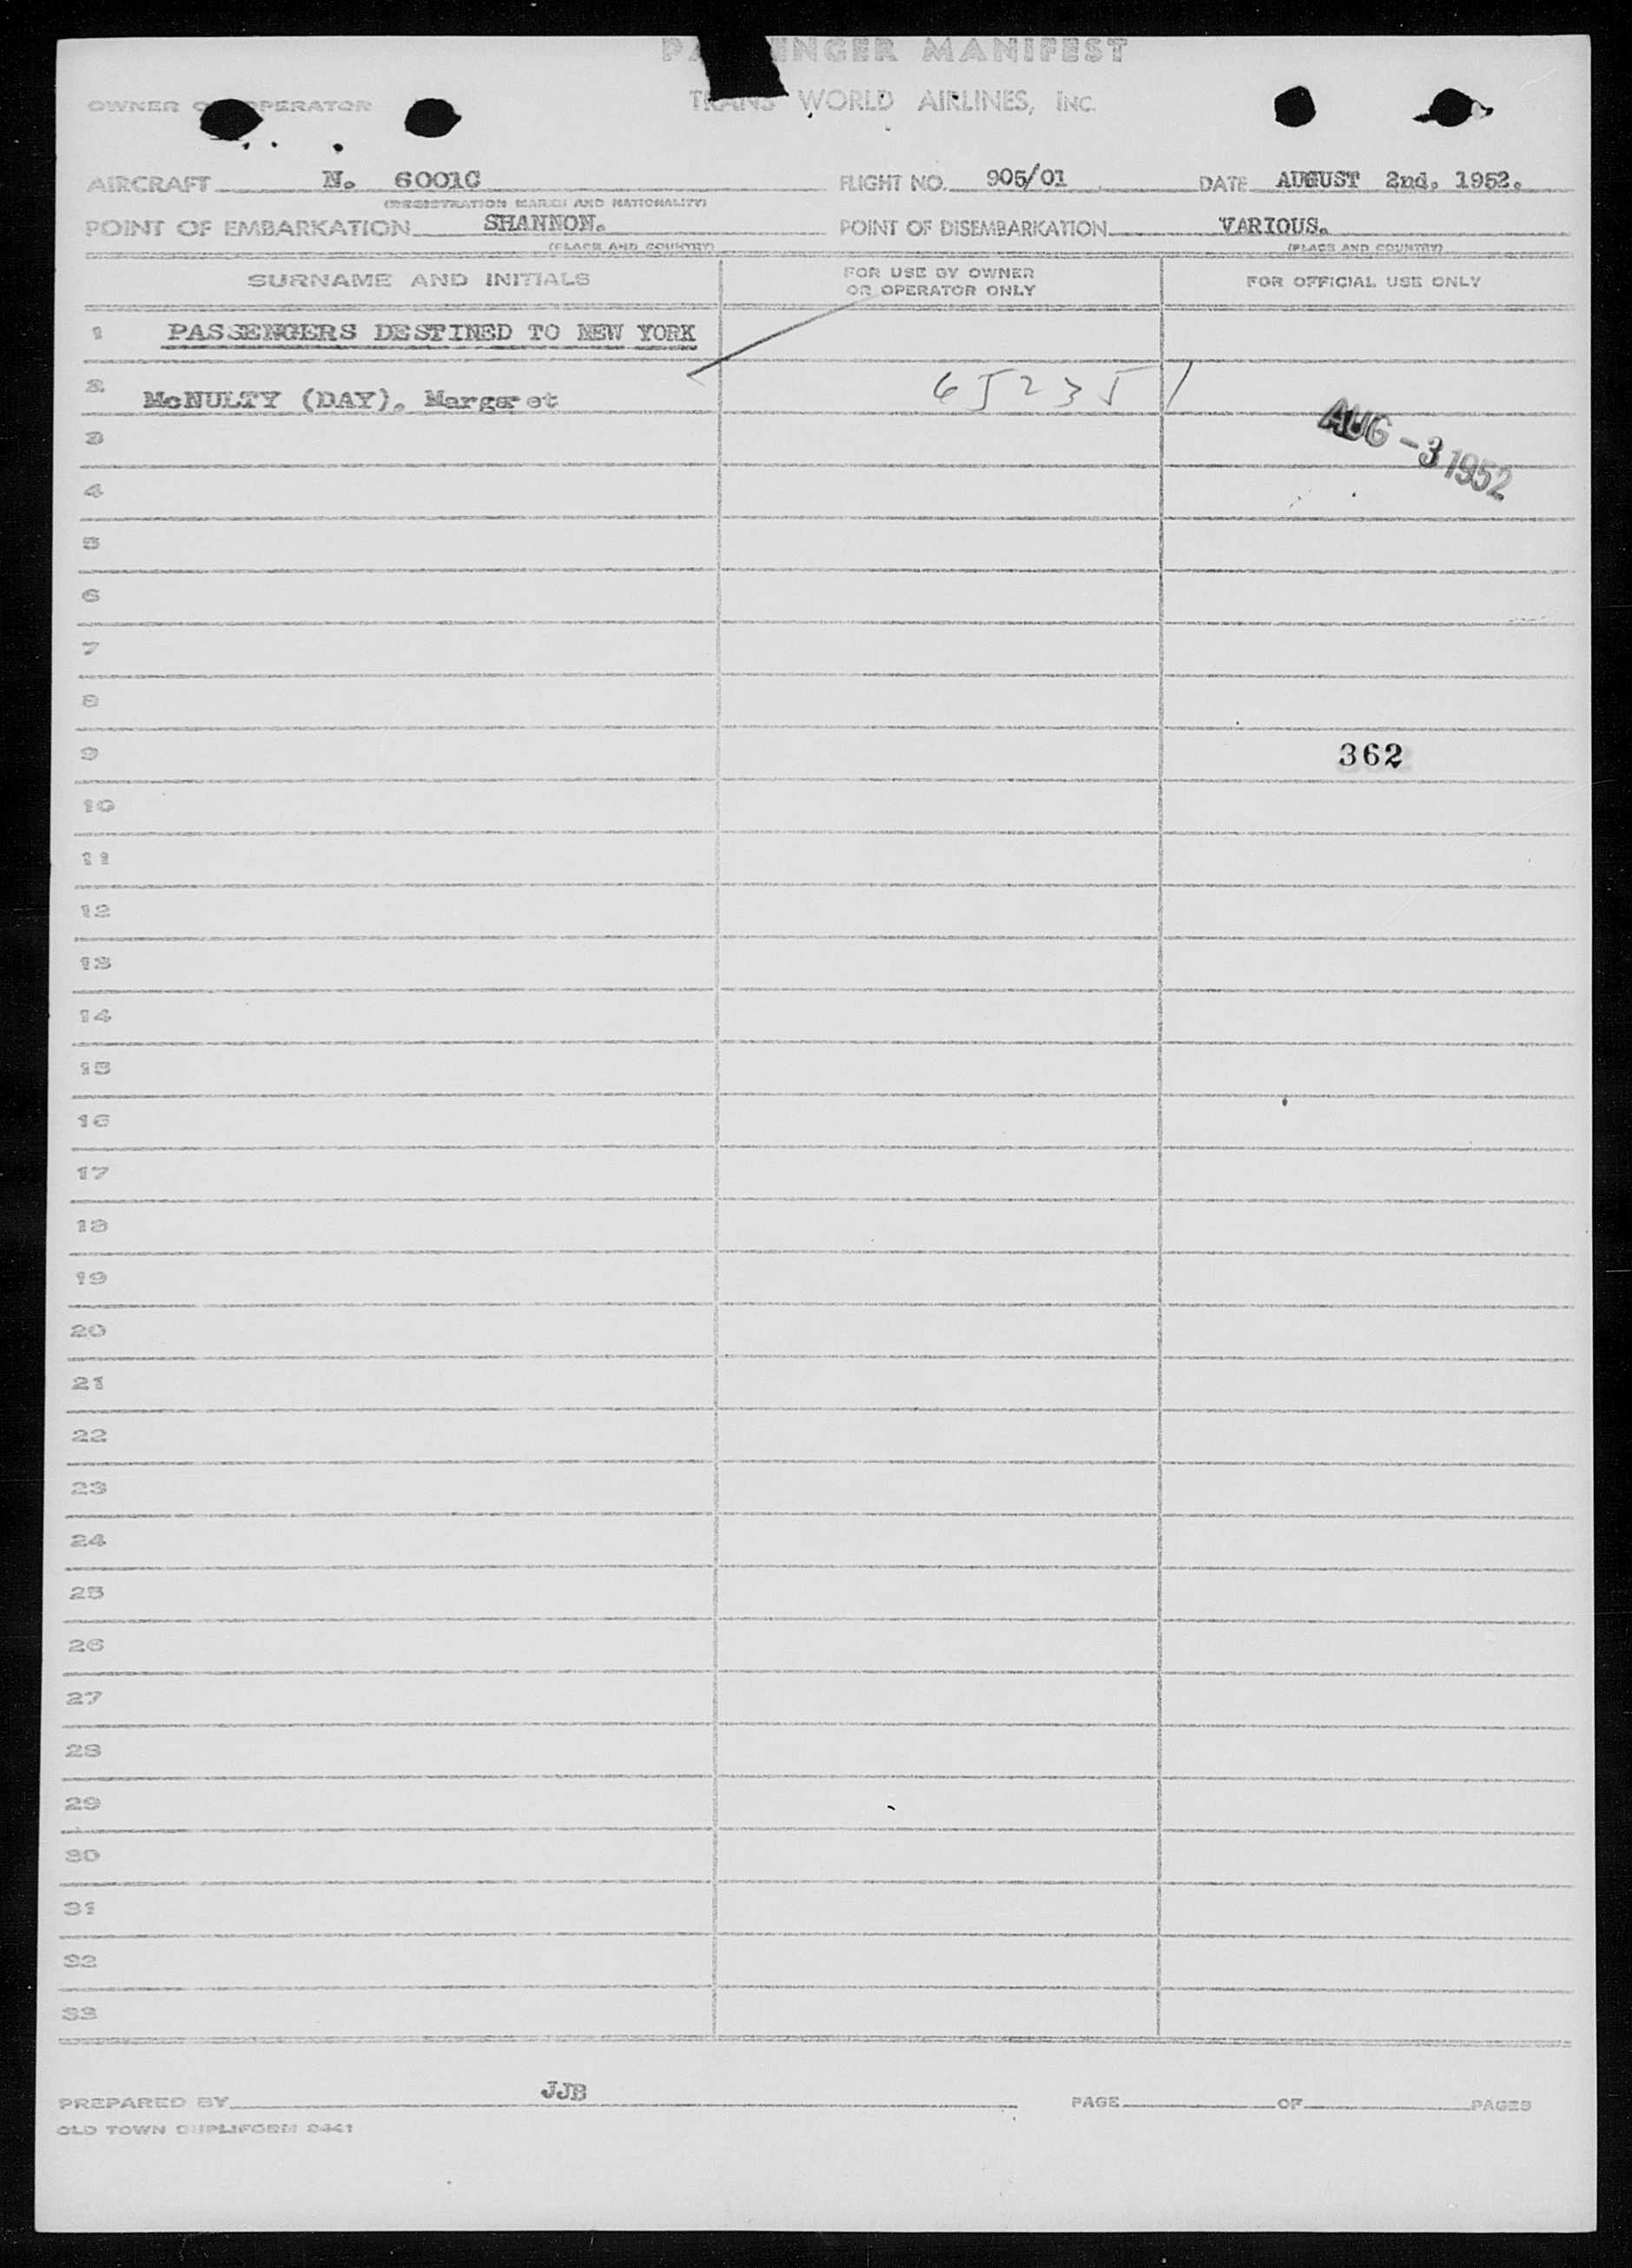 PA ENGER MANIFEST
OWNER O OPERATOR
TRANS WORLD AIRLINES, INC.
AIRCRAFT N. 6001C FLIGHT NO. 905/01 DATE AUGUST 2nd. 1952.
(REGISTRATION MARKS AND NATIONALITY)
POINT OF EMBARKATION SHANNON. POINT OF DISEMBARKATION VARIOUS.
(PLACE AND COUNTRY) (PLACE AND COUNTRY)
SURNAME AND INITIALS
FOR USE BY OWNER
OR OPERATOR ONLY
FOR OFFICIAL USE ONLY
1 PASSENGERS DESTINED TO NEW YORK
2 McNULTY (DAY). Margaret 65235
AUG -3 1952
3
4
5
6
7
8
9 362
10
11
12
13
14
15
16
17
18
19
20
21
22
23
24
25
26
27
28
29
30
31
32
33
PREPARED BY JJB PAGE OF PAGES
OLD TOWN DUPLIFORM 9441